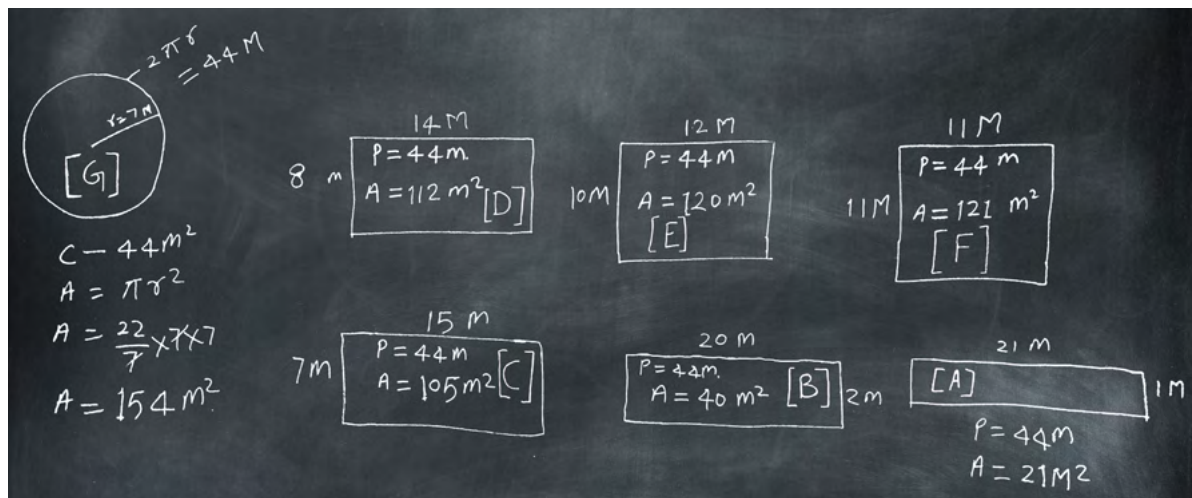 2πr
= 44 M
r=7M
[G]
C — 44m²
A = πr²
A = 22/7 ×7×7
A = 154 m²
14 M
8 m
P = 44m.
A = 112 m² [D]
12 M
10M
P = 44 M
A = 120 m²
[E]
11 M
11M
P = 44 m
A = 121 m²
[F]
15 m
7m
P = 44 m
A = 105 m² [C]
20 M
P = 44m.
A = 40 m² [B]
2m
21 m
[A]
1M
P = 44m
A = 21M2